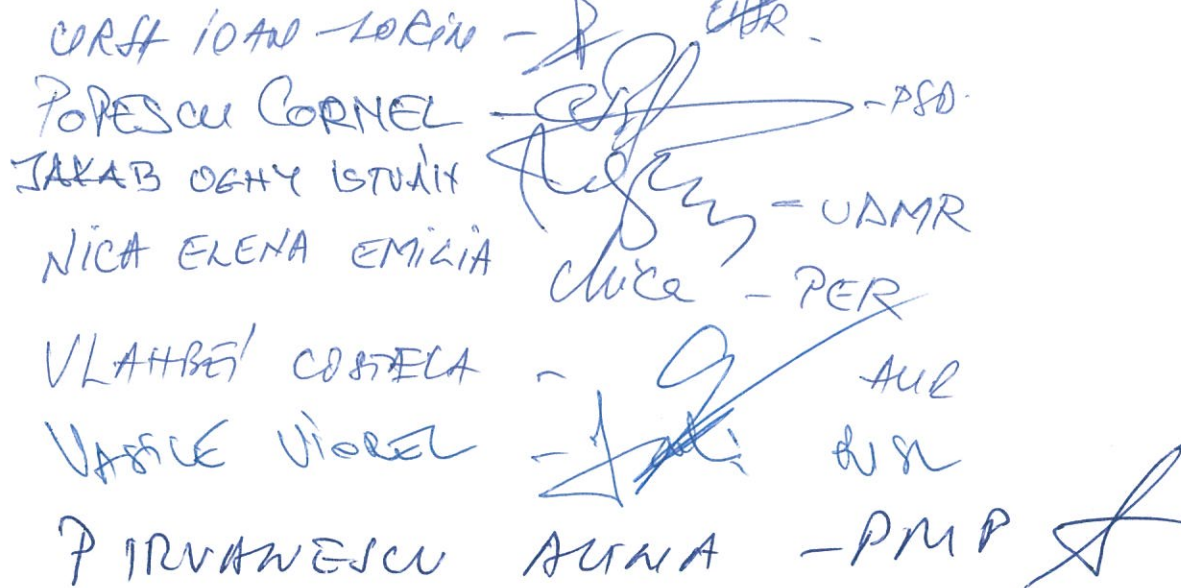 URSA IOAN-SORIN -
POPESCU CORNEL - - PSD.
JAKAB OGHY ISTVÁN - UDMR
NICA ELENA EMILIA Nica - PER
VLAHBEI COSTELA - AUR
VASILE VIOREL -
PIRVANESCU ALINA - PMP